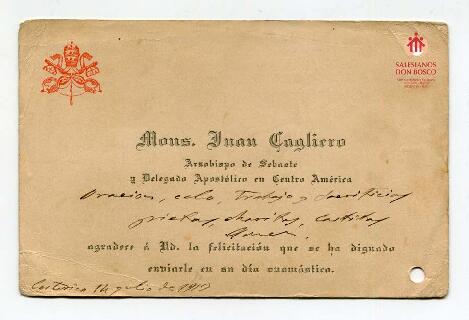 SALESIANOS
DON BOSCO
Mons. Juan Cagliero
Arzobispo de Sebaste
y Delegado Apostólico en Centro América
Oraciones, celo, Trabajo y Sacrificios
pietas, charitas, castitas
agradece á Ud. la felicitación que se ha dignado
enviarle en su día onomástico.
Costarica 14 julio de